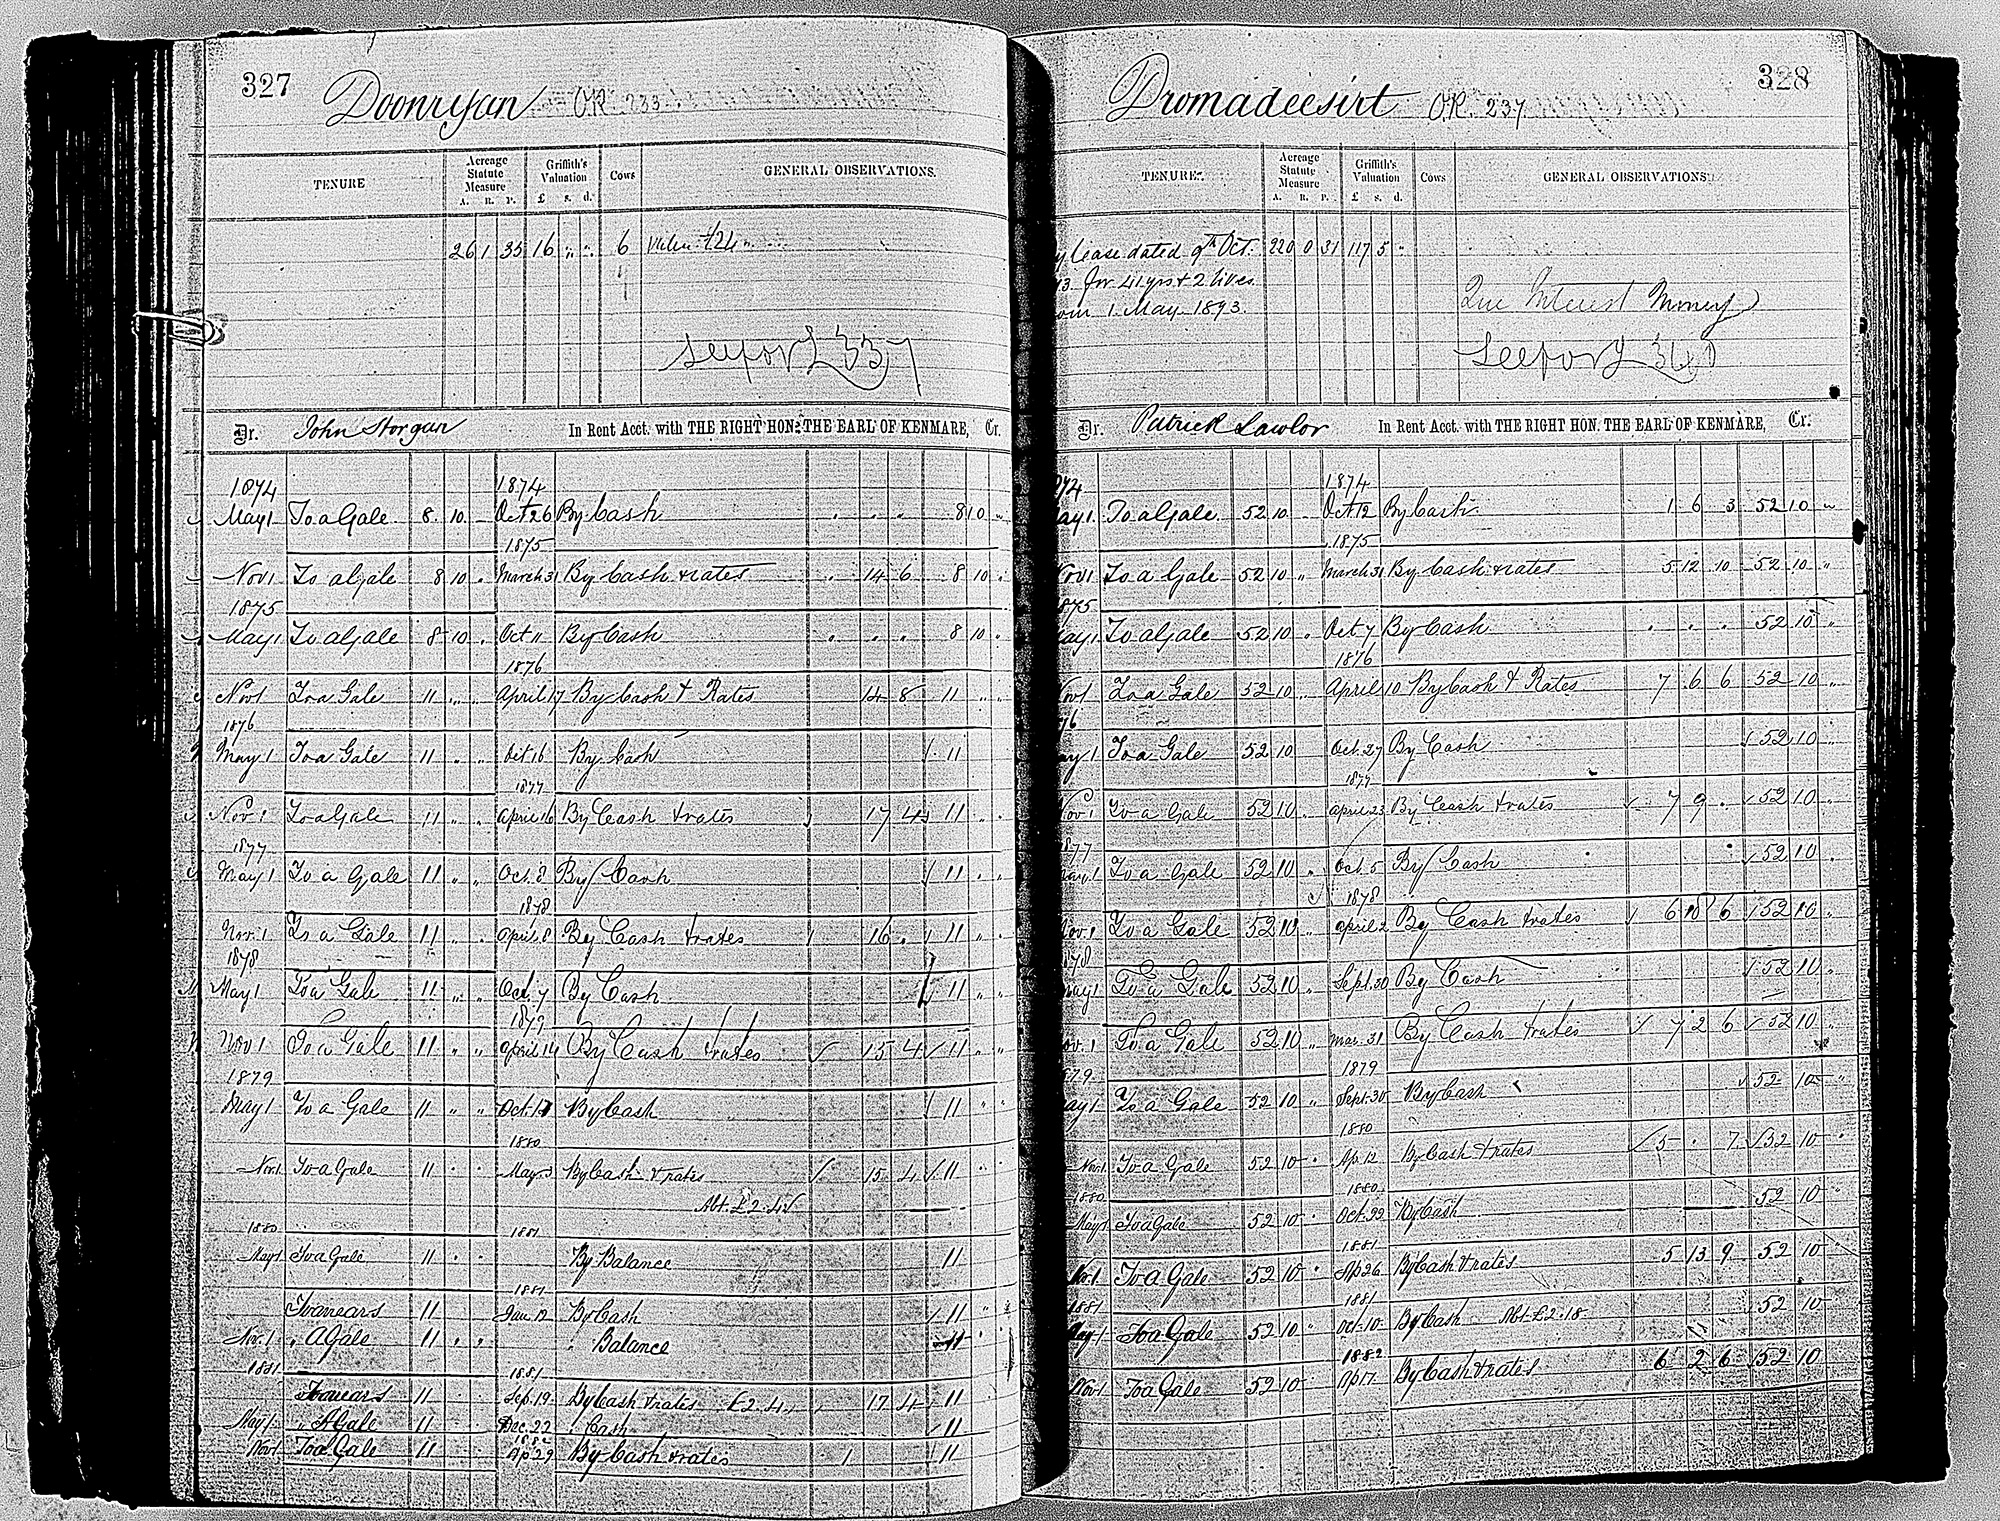 327
Doonryan O.R. 233.
TENURE
Acreage Statute Measure
A. R. P.
Griffith's Valuation
£ s. d.
Cows
GENERAL OBSERVATIONS.
26 1 35 16 " " 6 Value £24 "
337
Dr. John Horgan In Rent Acct. with THE RIGHT HON. THE EARL OF KENMARE, Cr.
1874 1874
May 1 To a Gale 8 10 Oct 26 By Cash " " " 8 10 "
1875
Nov 1 To a Gale 8 10 " March 31 By Cash & rates " 14 6 8 10 "
1875
May 1 To a Gale 8 10 " Oct 11 By Cash " " " 8 10 "
1876
Nov 1 To a Gale 11 " " April 17 By Cash & Rates 14 8 11 " "
1876
May 1 To a Gale 11 " " Oct 16 By Cash 11
1877
Nov 1 To a Gale 11 " " April 16 By Cash & rates 17 4 11 " "
1877
May 1 To a Gale 11 " " Oct. 8 By Cash 11 " "
1878
Nov. 1 To a Gale 11 " " April 8 By Cash & rates 16 " 11 " "
1878
May 1 To a Gale 11 " " Oct. 7 By Cash 11 " "
1879
Nov 1 To a Gale 11 " " April 14 By Cash & rates 15 4 11 " "
1879
May 1 To a Gale 11 " " Oct. 17 By Cash 11 " "
1880
Nov 1 To a Gale 11 " " May 3 By Cash & rates 15 4 11 " "
Abt. £2.4
1880 1881
May 1 To a Gale 11 " " By Balance 11
1881
To arrears 11 Jan 12 By Cash 11 "
Nov. 1 " A Gale 11 " " " Balance 11 "
1881 1881
To arrears 11 Sep. 19 By Cash & rates £2.4 17 4 11
May 1 " A Gale 11 Dec. 22 " Cash 11
1882
Nov 1 To a Gale 11 Ap 29 By Cash & rates 1 11
328
Dromadeesirt O.R. 237.
TENURE.
Acreage Statute Measure
A. R. P.
Griffith's Valuation
£ s. d.
Cows
GENERAL OBSERVATIONS.
y Lease dated 9th Oct. 220 0 31 117 5 "
3. for 41 yrs & 2 lives
om 1 May 1893.
Interest Money
340
Dr. Patrick Lawlor In Rent Acct. with THE RIGHT HON. THE EARL OF KENMARE, Cr.
74 1874
ay 1 To a Gale 52 10 Oct 12 By Cash 1 6 3 52 10 "
1875
Nov 1 To a Gale 52 10 " March 31 By Cash & rates 5 12 10 52 10 "
875
ay 1 To a Gale 52 10 " Oct 7 By Cash " " " 52 10 "
1876
Nov 1 To a Gale 52 10 " April 10 By Cash & Rates 7 6 6 52 10 "
76
ay 1 To a Gale 52 10 Oct. 27 By Cash 52 10 "
1877
Nov 1 To a Gale 52 10 " April 23 By Cash & rates 7 9 " 52 10 "
877
ay 1 To a Gale 52 10 " Oct. 5 By Cash 52 10 "
1878
Nov. 1 To a Gale 52 10 " April 2 By Cash & rates 6 18 6 52 10 "
78
ay 1 To a Gale 52 10 " Sept. 30 By Cash 52 10 "
ov. 1 To a Gale 52 10 " Mar. 31 By Cash & rates 7 2 6 52 10 "
79 1879
ay 1 To a Gale 52 10 " Sept. 30 By Cash 52 10 "
1880
Nov 1 To a Gale 52 10 " Ap. 12 By Cash & rates 5 " 7 52 10 "
1880 1880
May 1 To a Gale 52 10 " Oct. 22 By Cash 52 10 "
1881
Nov. 1 To a Gale 52 10 " Ap 26 By Cash & rates 5 13 9 52 10 "
1881 1881
May 1 To a Gale 52 10 " Oct. 10 By Cash Abt. £2.18 52 10
1882
Nov 1 To a Gale 52 10 " Ap 17 By Cash & rates 6 2 6 52 10